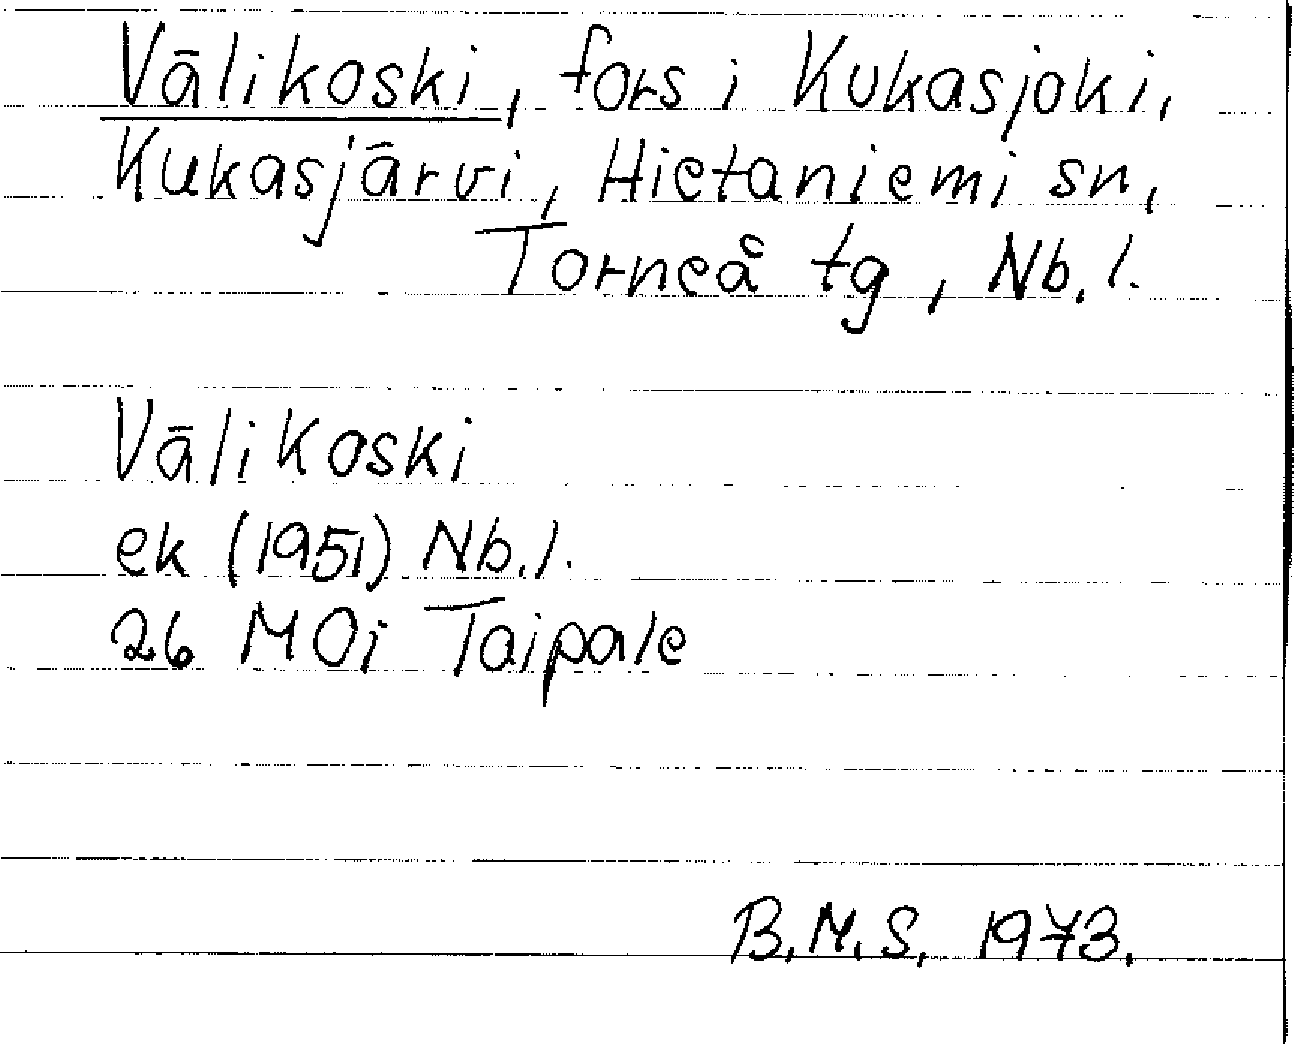 Välikoski, fors i Kukasjoki,
Kukasjärvi, Hietaniemi sn,
Torneå tg, Nb. l.
Välikoski
ek (1951) Nb. l.
26 MOi Taipale
B.M.S. 1973.